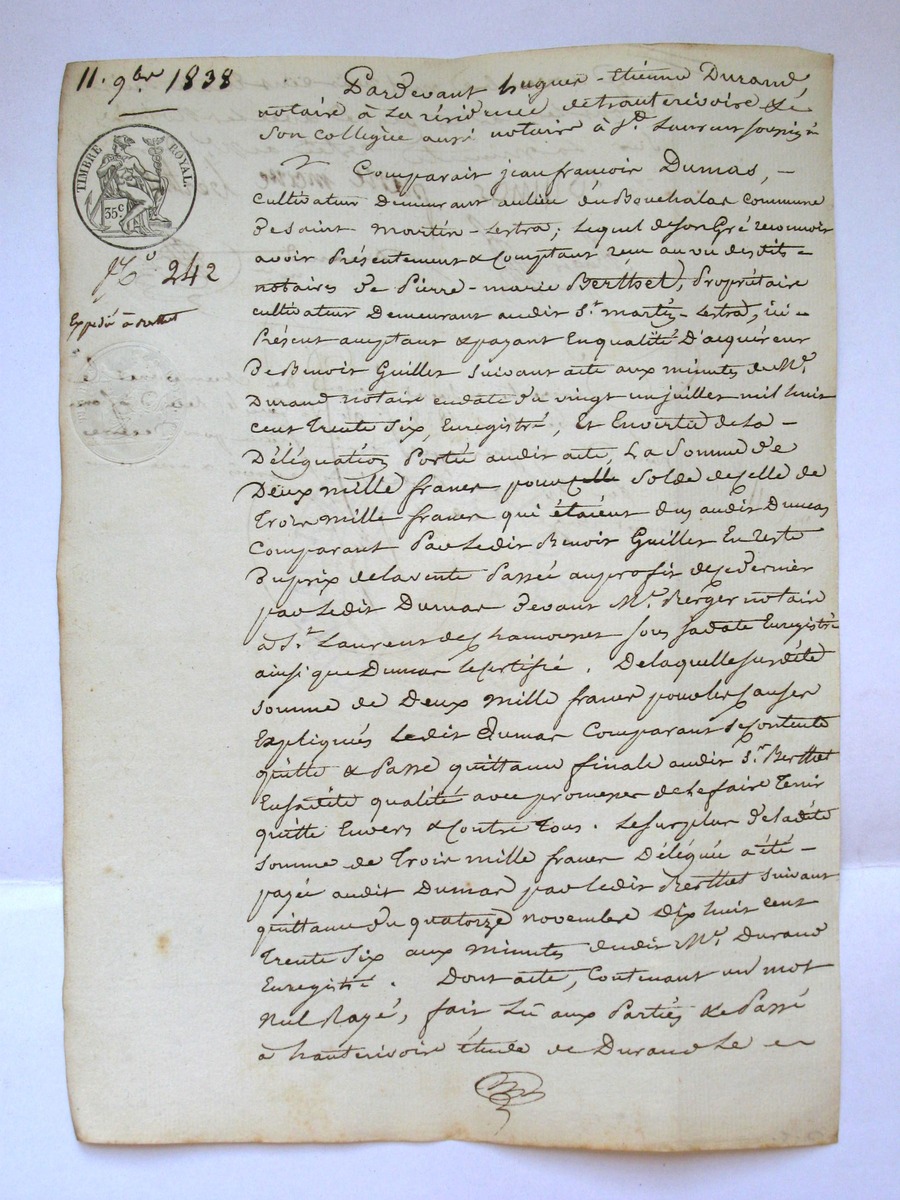 11. 9bre 1838
TIMBRE ROYAL.
35c
No 242
Expédié à Berthet
Pardevant hugues-Etienne Durand
notaire à La résidence de hauterivoire &
Son collegue aussi notaire à St. Laurent soussignés
Comparait jean francois Dumas, —
Cultivateur Demeurant au lieu du Bouchalas commune
De saint Martin-Lestra; Lequel de son Gré reconnoit
avoir Présentement & Comptant reçu au vu des dits =
notaires De Pierre-marie Berthet, Propriétaire
cultivateur Demeurant audit St. martin-Lestra, ici =
Présent acceptant & payant En qualité D'acquéreur
De Benoit Guillet suivant acte aux minutes de Me.
Durand notaire en date du vingt un juillet mil huit
cent trente Six, Enregistré, Et En vertu de La —
Délégation Portée audit acte, La Somme De
Deux mille francs pour celle Solde de celle de
Trois mille francs qui étaient dus audit Dumas
Comparant Par Ledit Benoit Guillet En Reste
Du prix de la vente Passée au profit de ce Dernier
par Ledit Dumas Devant Me. Berger notaire
à St. Laurent de Chamousset sous sa date Enregistré
ainsi que Dumas le Certifie. De laquelle susdite
somme de Deux mille francs pour les causes
Expliqués Ledit Dumas Comparant se contente
quitte & Passe quittance finale audit Sr. Berthet
En sadite qualité avec promesses de le faire Tenir
quitte Envers & Contre Tous. Le surplus De ladite
somme de Trois mille francs Déléguée a été —
payée audit Dumas par Ledit Berthet suivant
quittance du quatorze novembre Dix huit cent
Trente Six aux minutes dudit Me. Durand
Enregistré. Dont acte, Contenant un mot
Nul Rayé, fait Lû aux Parties & Passé
à hauterivoire étude de Durand Le